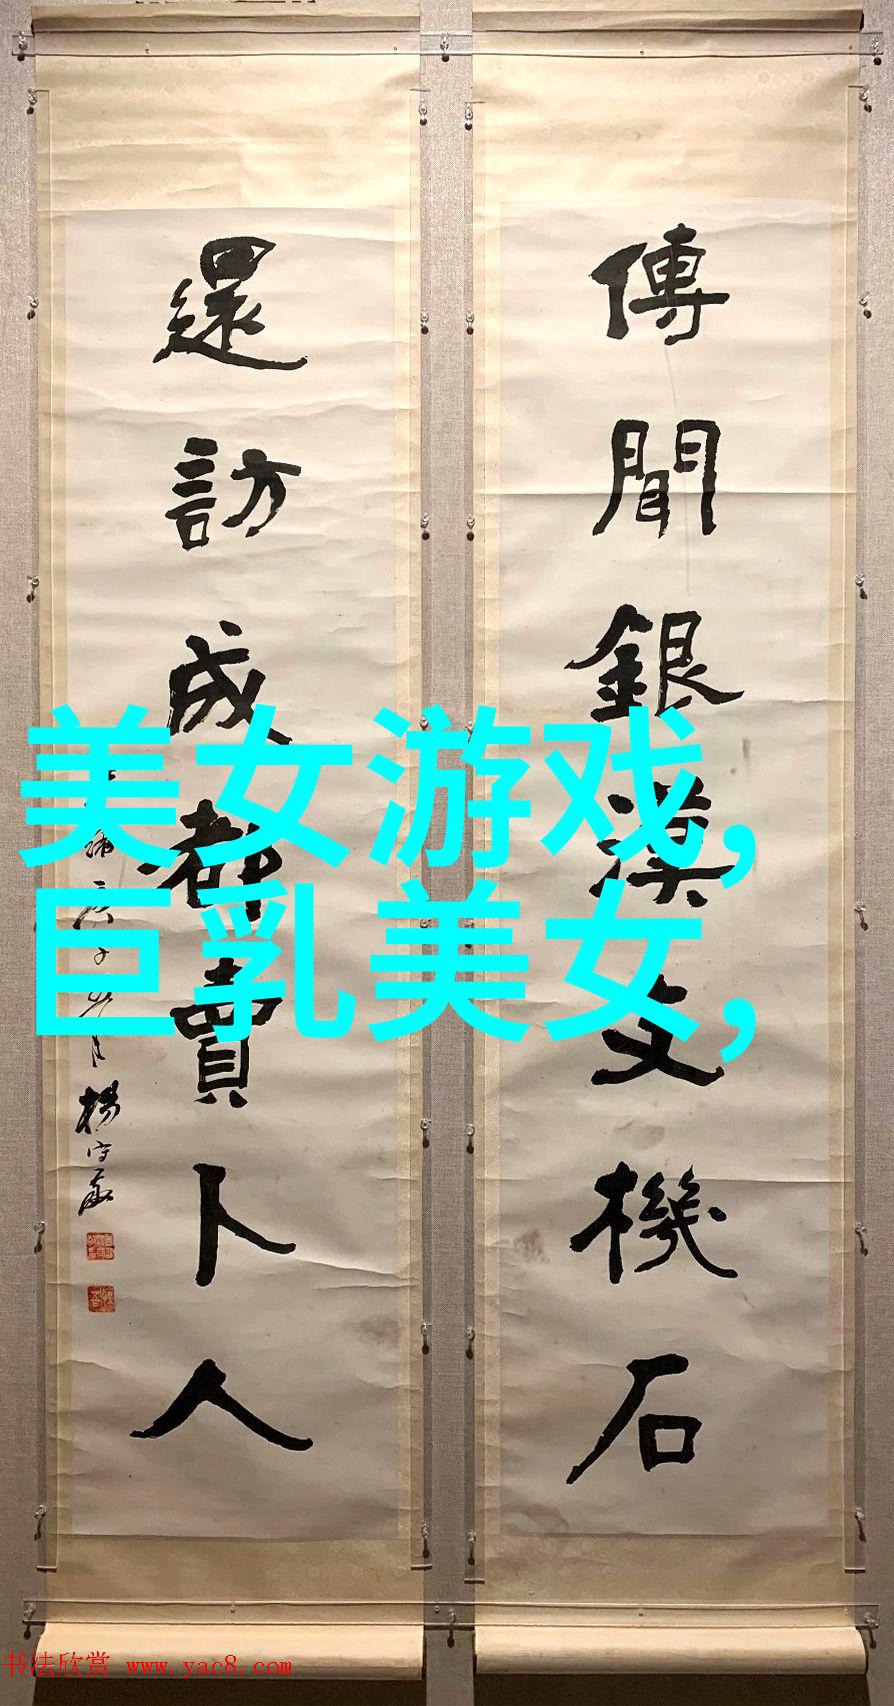 傳聞銀漢支機石
還訪成都賣卜人
楊守敬
美女游戏,
巨乳美女,
书法欣赏 www.yac8.com